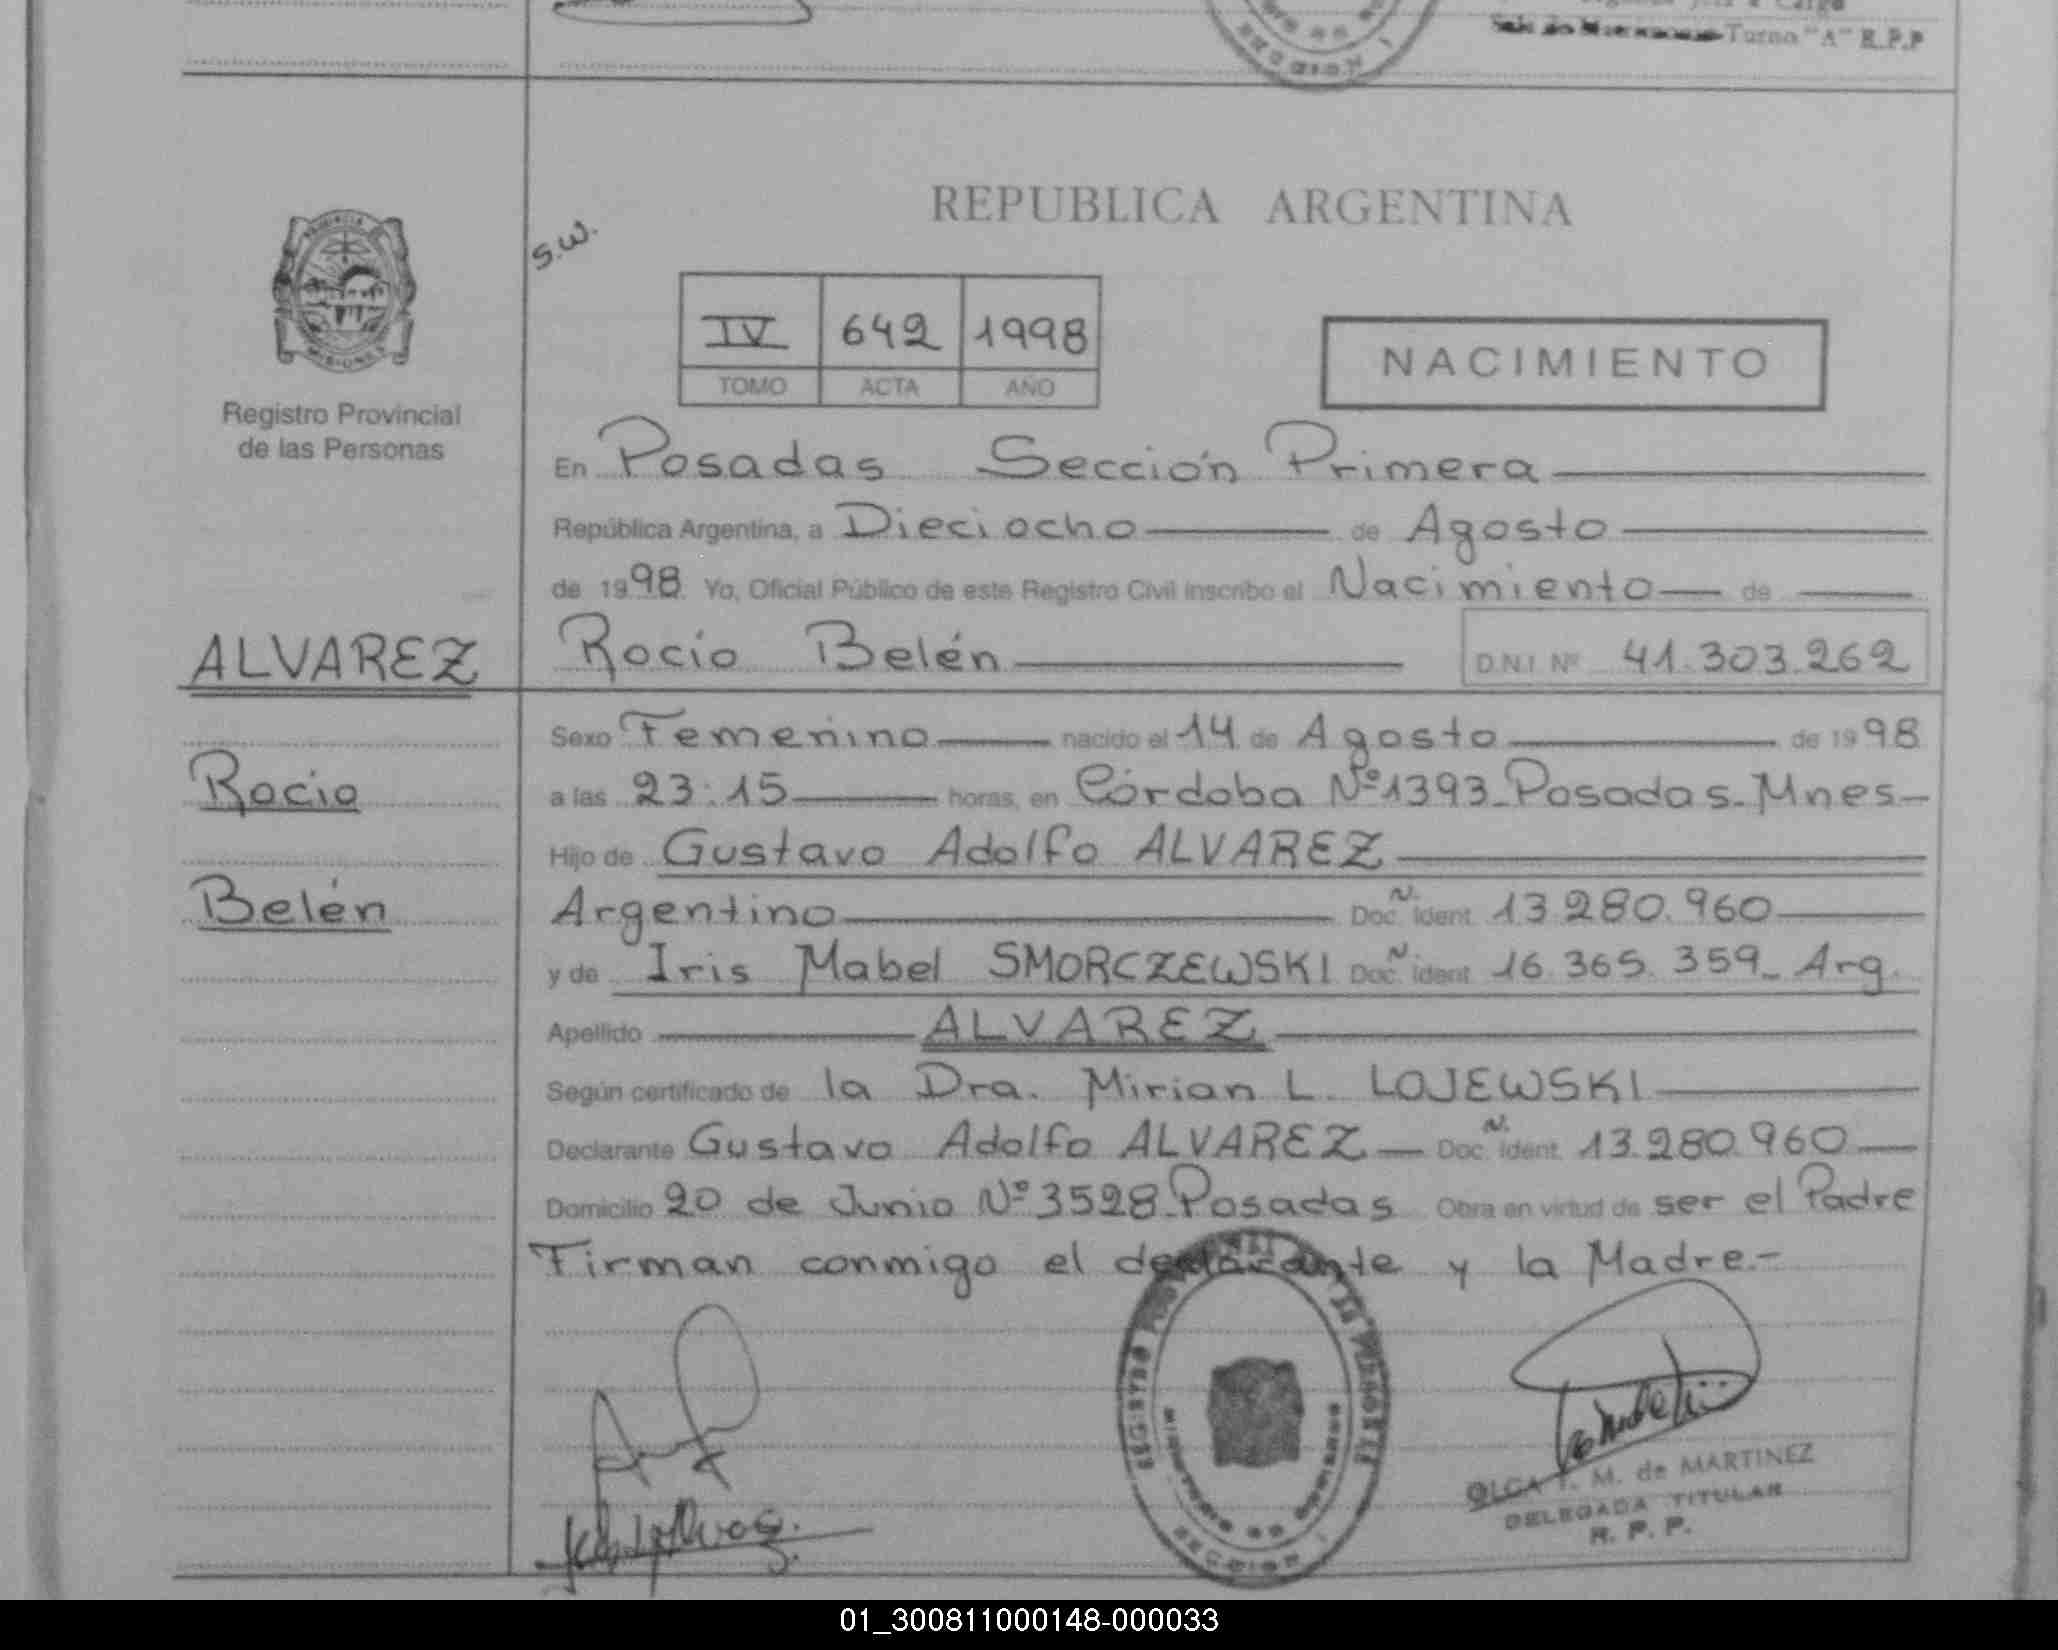 Turno "A" R.P.P
REPUBLICA ARGENTINA
S.W.
PROVINCIA DE MISIONES
IV 642 1998
TOMO ACTA AÑO
NACIMIENTO
Registro Provincial
de las Personas
En Posadas Sección Primera
República Argentina, a Dieciocho de Agosto
de 1998 Yo, Oficial Público de este Registro Civil inscribo el Nacimiento de
ALVAREZ Rocío Belén D.N.I. Nº 41.303.262
Sexo Femenino nacido el 14 de Agosto de 1998
Rocío
a las 23:15 horas, en Córdoba Nº1393-Posadas-Mnes-
Hijo de Gustavo Adolfo ALVAREZ
Belén
Argentino Doc. N. Ident. 13.280.960
y de Iris Mabel SMORCZEWSKI Doc. N. Ident. 16.365.359- Arg.
Apellido ALVAREZ
Según certificado de la Dra. Mirian L. LOJEWSKI
Declarante Gustavo Adolfo ALVAREZ - Doc. N. Ident. 13.280.960
Domicilio 20 de Junio Nº 3528-Posadas Obra en virtud de ser el Padre
Firman conmigo el declarante y la Madre.-
REGISTRO PROVINCIAL DE LAS PERSONAS
MINISTERIO DE GOBIERNO
SECCION I
OLGA M. de MARTINEZ
DELEGADA TITULAR
R. P. P.
01_300811000148-000033